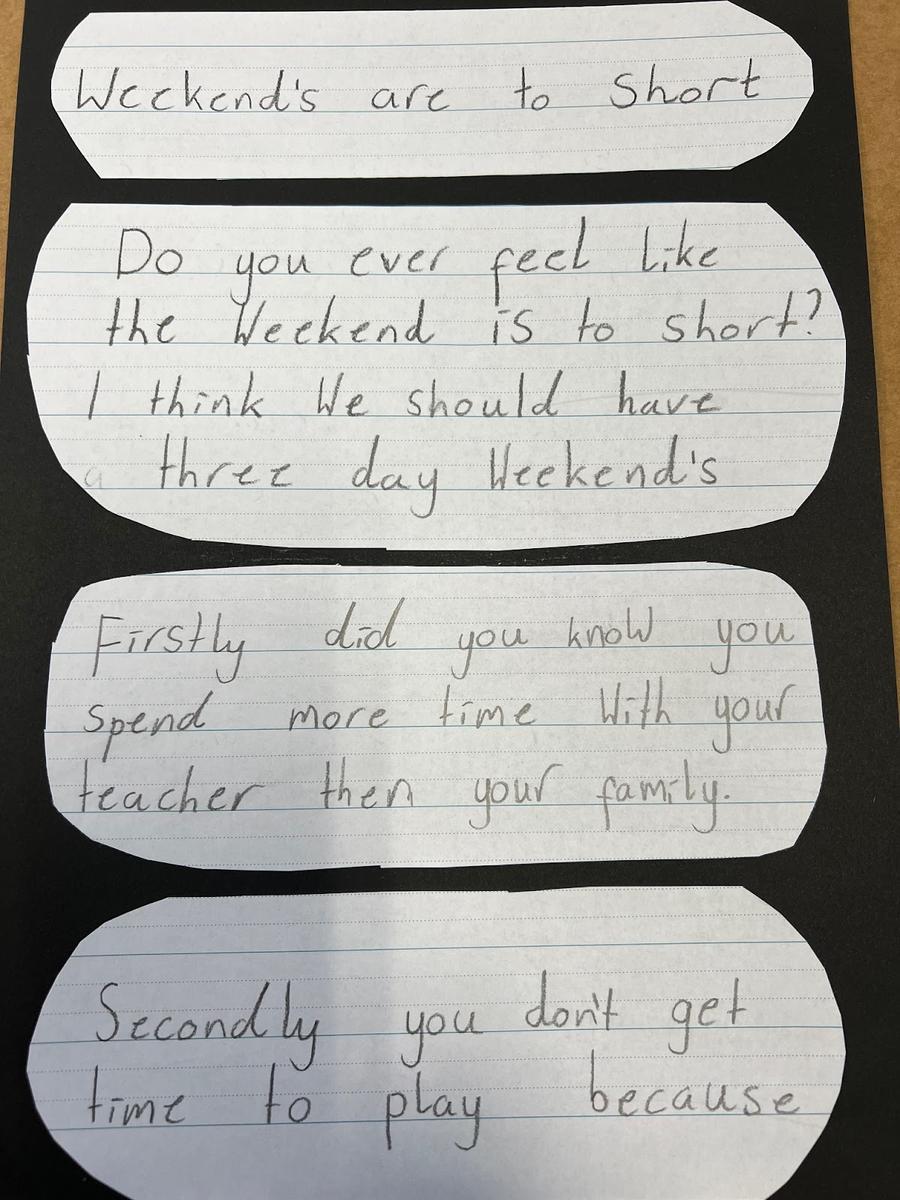 Weekend's are to Short
Do you ever feel like
the Weekend is to short?
I think We should have
a three day Weekend's
Firstly did you know you
spend more time With your
teacher then your family.
Secondly you don't get
time to play because